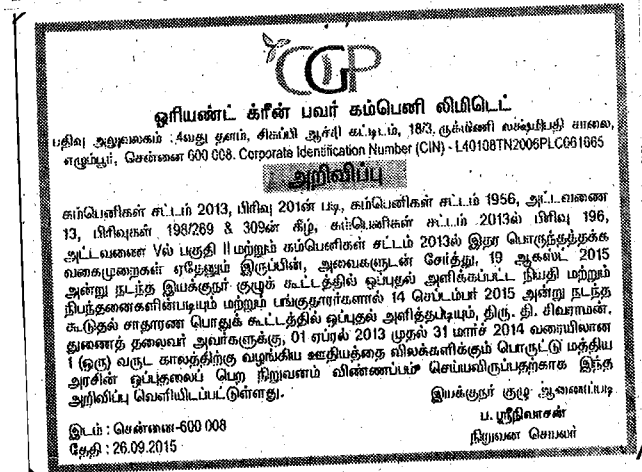 OGP
ஓரியண்ட் க்ரீன் பவர் கம்பெனி லிமிடெட்
பதிவு அலுவலகம் : 4வது தளம், சிகப்பி ஆச்சி கட்டிடம், 18/3, ருக்மிணி லக்ஷ்மிபதி சாலை,
எழும்பூர், சென்னை 600 008. Corporate Identification Number (CIN) - L40108TN2006PLC061665
அறிவிப்பு
கம்பெனிகள் சட்டம் 2013, பிரிவு 201ன் படி, கம்பெனிகள் சட்டம் 1956, அட்டவணை
13, பிரிவுகள் 198/269 & 309ன் கீழ், கம்பெனிகள் சட்டம் 2013ல் பிரிவு 196,
அட்டவணை Vல் பகுதி II மற்றும் கம்பெனிகள் சட்டம் 2013ல் இதர பொருந்தத்தக்க
வகைமுறைகள் ஏதேனும் இருப்பின், அவைகளுடன் சேர்த்து, 19 ஆகஸ்ட் 2015
அன்று நடந்த இயக்குநர் குழுக் கூட்டத்தில் ஒப்புதல் அளிக்கப்பட்ட நியதி மற்றும்
நிபந்தனைகளின்படியும் மற்றும் பங்குதாரர்களால் 14 செப்டம்பர் 2015 அன்று நடந்த
கூடுதல் சாதாரண பொதுக் கூட்டத்தில் ஒப்புதல் அளித்தபடியும், திரு. தி. சிவராமன்,
துணைத் தலைவர் அவர்களுக்கு, 01 ஏப்ரல் 2013 முதல் 31 மார்ச் 2014 வரையிலான
1 (ஒரு) வருட காலத்திற்கு வழங்கிய ஊதியத்தை விலக்களிக்கும் பொருட்டு மத்திய
அரசின் ஒப்புதலைப் பெற நிறுவனம் விண்ணப்பம் செய்யவிருப்பதற்காக இந்த
அறிவிப்பு வெளியிடப்பட்டுள்ளது.
இயக்குநர் குழு ஆணைப்படி
ப. ஸ்ரீநிவாசன்
இடம் : சென்னை-600 008
நிறுவன செயலர்
தேதி : 26.09.2015